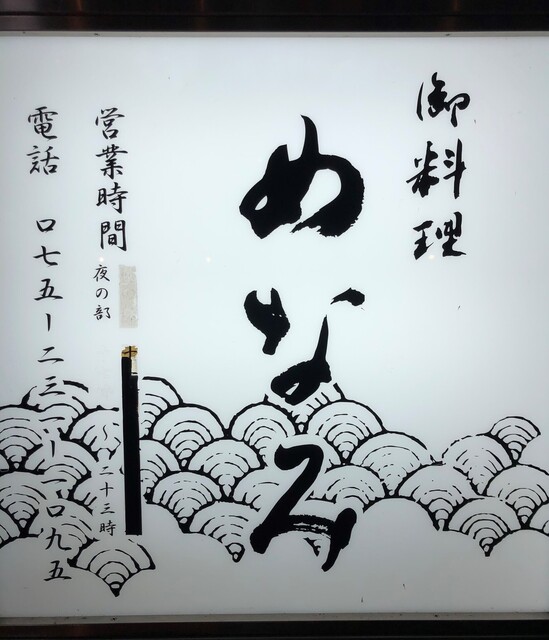 御料理
めなみ
営業時間 夜の部 ～二十三時
電話 〇七五ー二三一ー一〇九五